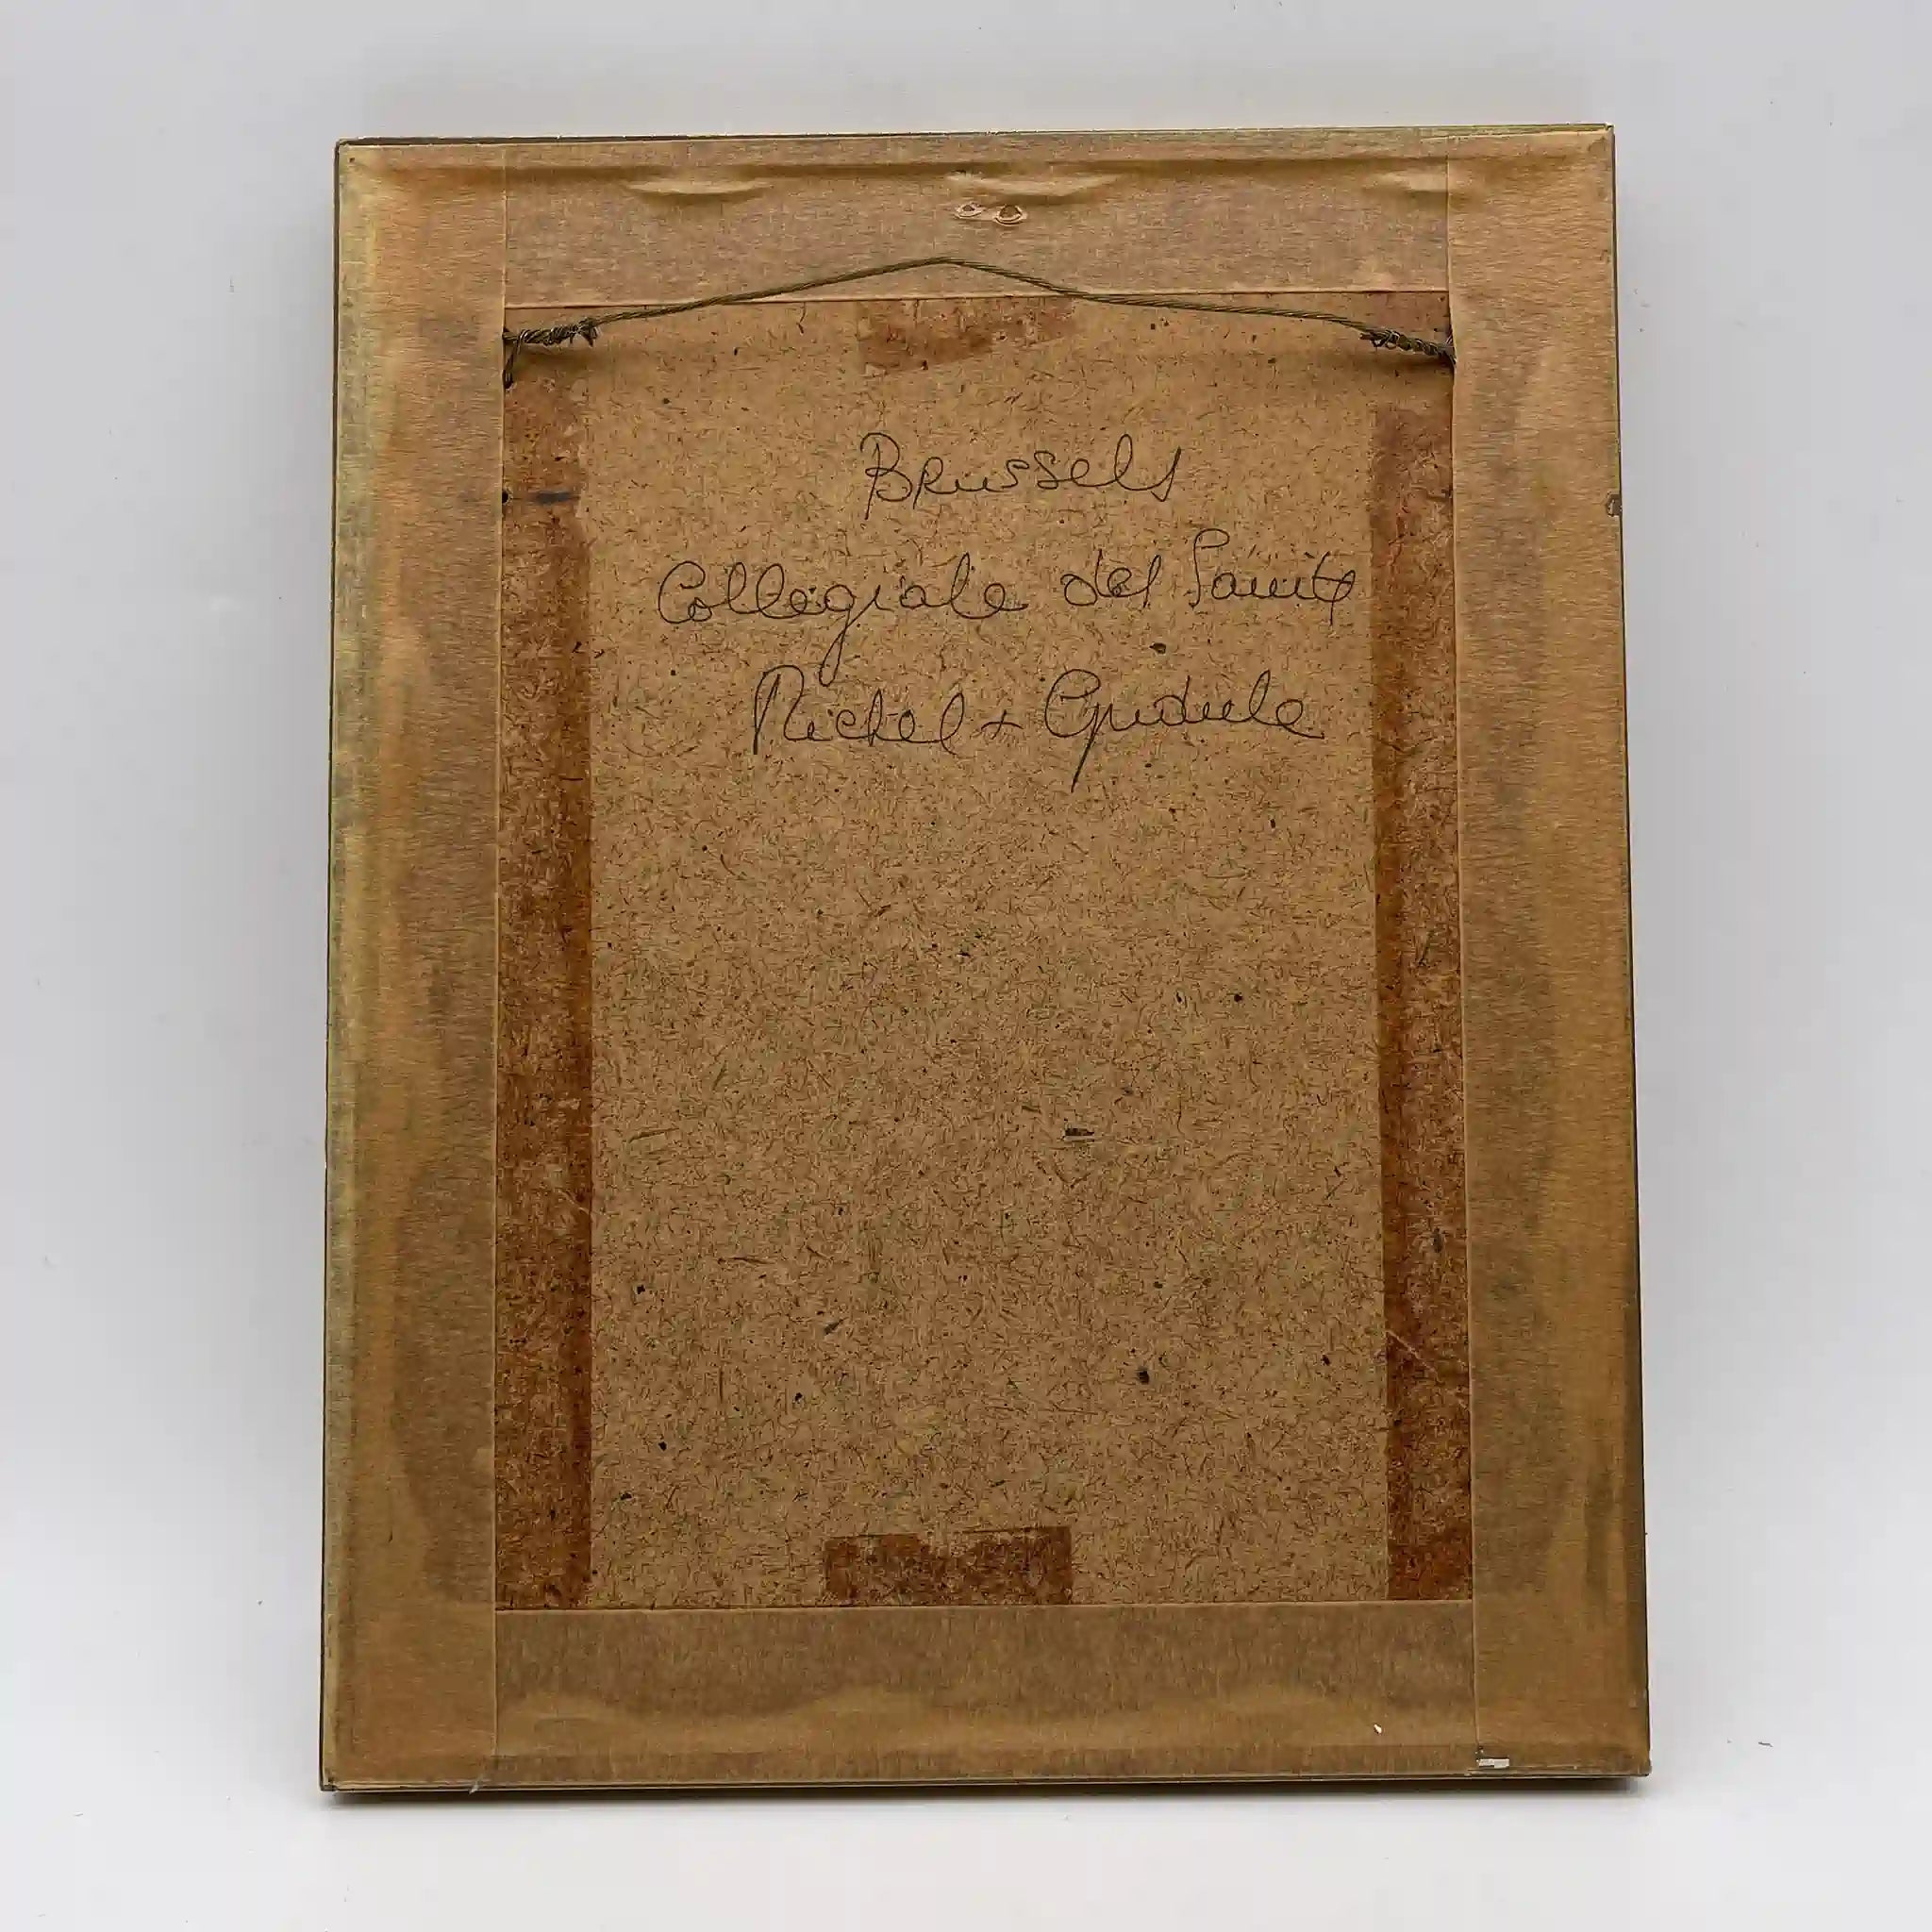 Brussels
Collegiale des Saints
Michel + Gudule